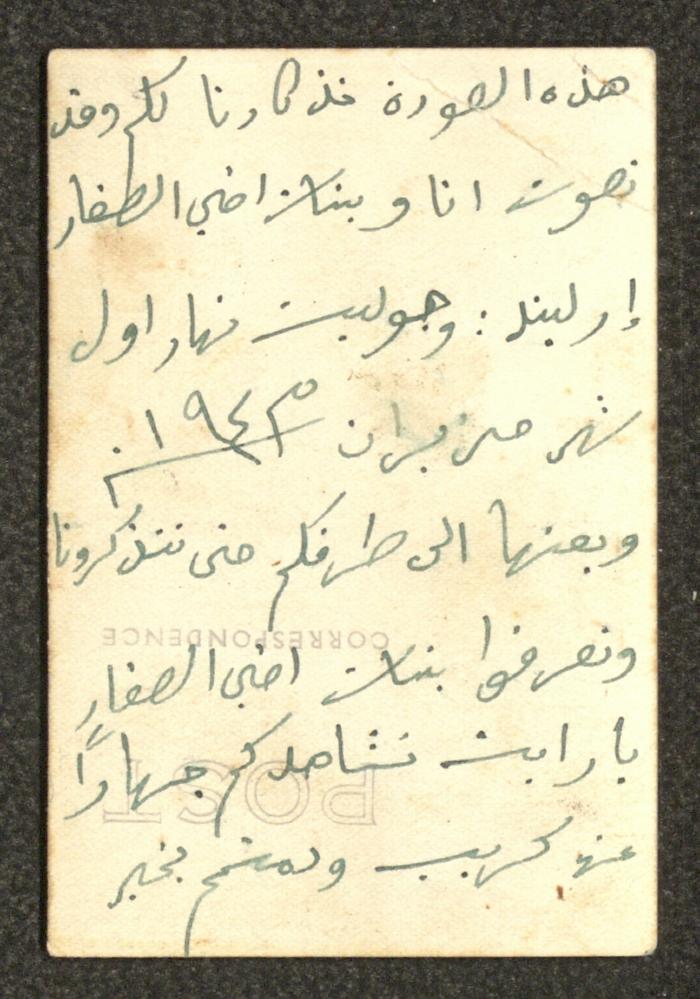 هذه الصورة تذكارنا لكم وقد
تصوت انا وبنات اختي الصغار
إرليند : وجوليت نهار اول
شهر حزيران ١٩٤٣
وبعتها الى طرفكم حتى تتذكرونا
وتعرفوا بنات اختي الصغار
يارايت نشاهدكم جهاراً
عن كريب ودمتم بخير
CORRESPONDENCE
POST